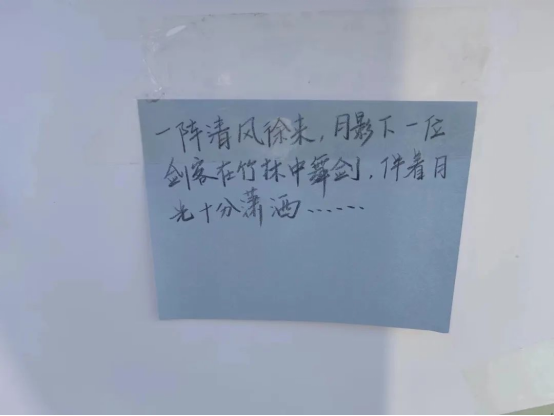 一阵清风徐来，月影下一位
剑客在竹林中舞剑，伴着月
光十分潇洒……